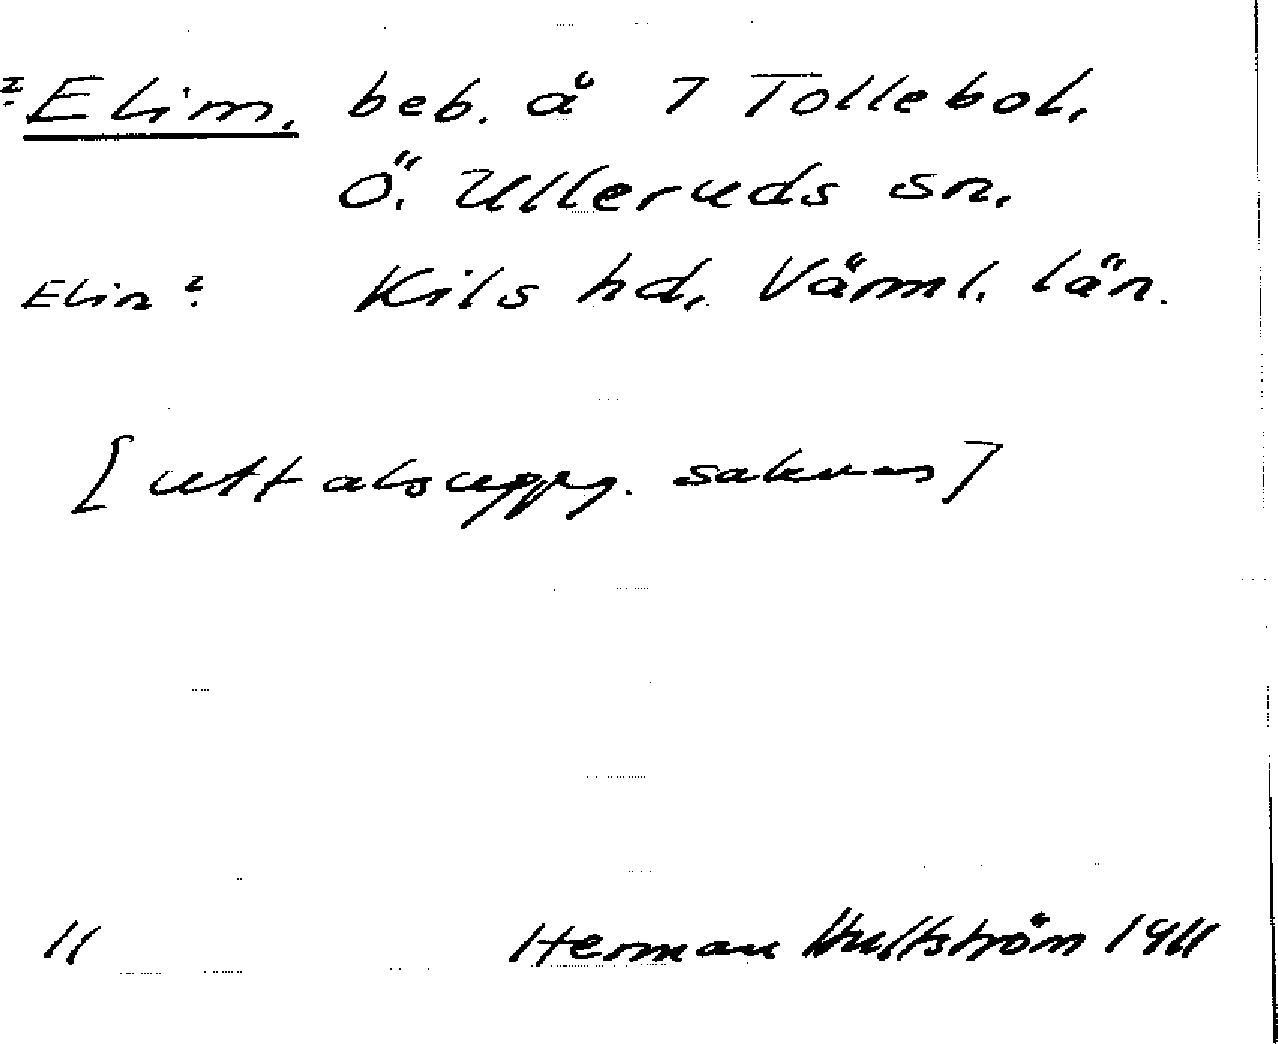 ? Elim. beb. å 7 Tollebol.
Ö. Ulleruds sn.
Elin? Kils hd. Värml. län.
[uttalsuppg. saknas]
11 Herman Hultström 1911